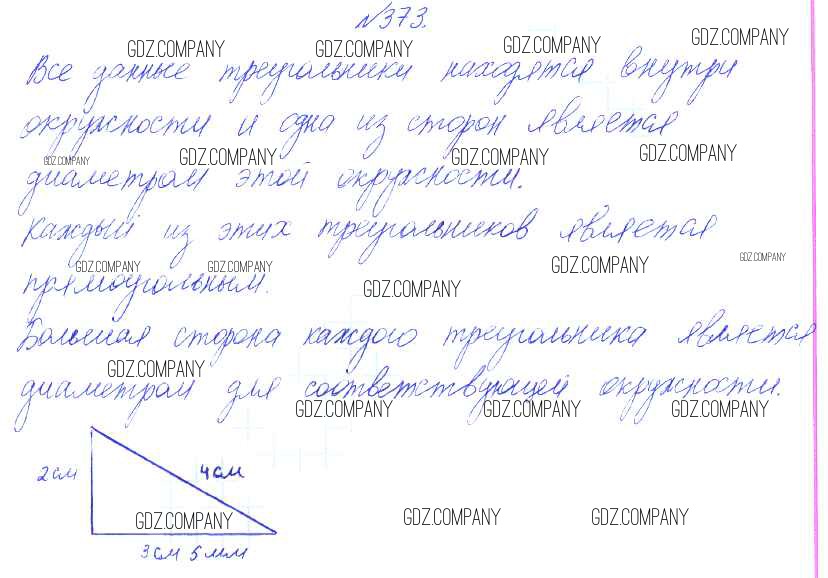 №373.
GDZ.COMPANY GDZ.COMPANY GDZ.COMPANY GDZ.COMPANY
Все данные треугольники находятся внутри
окружности и одна из сторон является
GDZ.COMPANY GDZ.COMPANY GDZ.COMPANY GDZ.COMPANY
диаметром этой окружности.
Каждый из этих треугольников является
GDZ.COMPANY GDZ.COMPANY GDZ.COMPANY GDZ.COMPANY GDZ.COMPANY
прямоугольным.
Большая сторона каждого треугольника является
GDZ.COMPANY
диаметром для соответствующей окружности.
GDZ.COMPANY GDZ.COMPANY GDZ.COMPANY
2 см 4 см
GDZ.COMPANY GDZ.COMPANY GDZ.COMPANY
3 см 5 мм